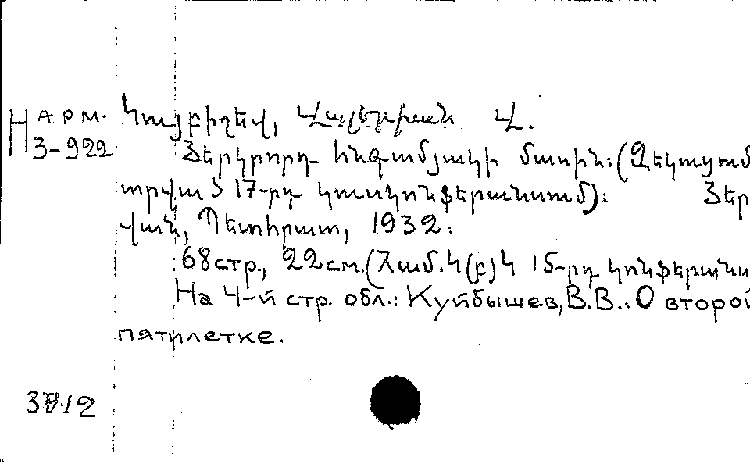 Н арм. Կույբիշեվ, Վալերիան Վ.
3-922 Յերկրորդ հնգամյակի մասին: (Զեկուցում
տրված 17-րդ կուսկոնֆերանսում): Յեր
վան, Պետհրատ, 1932:
68стр., 22см. (Համ.Կ(բ)Կ 15-րդ կոնֆերանս
На 4-й стр. обл.: Куйбышев, В.В.: О второй
пятилетке.